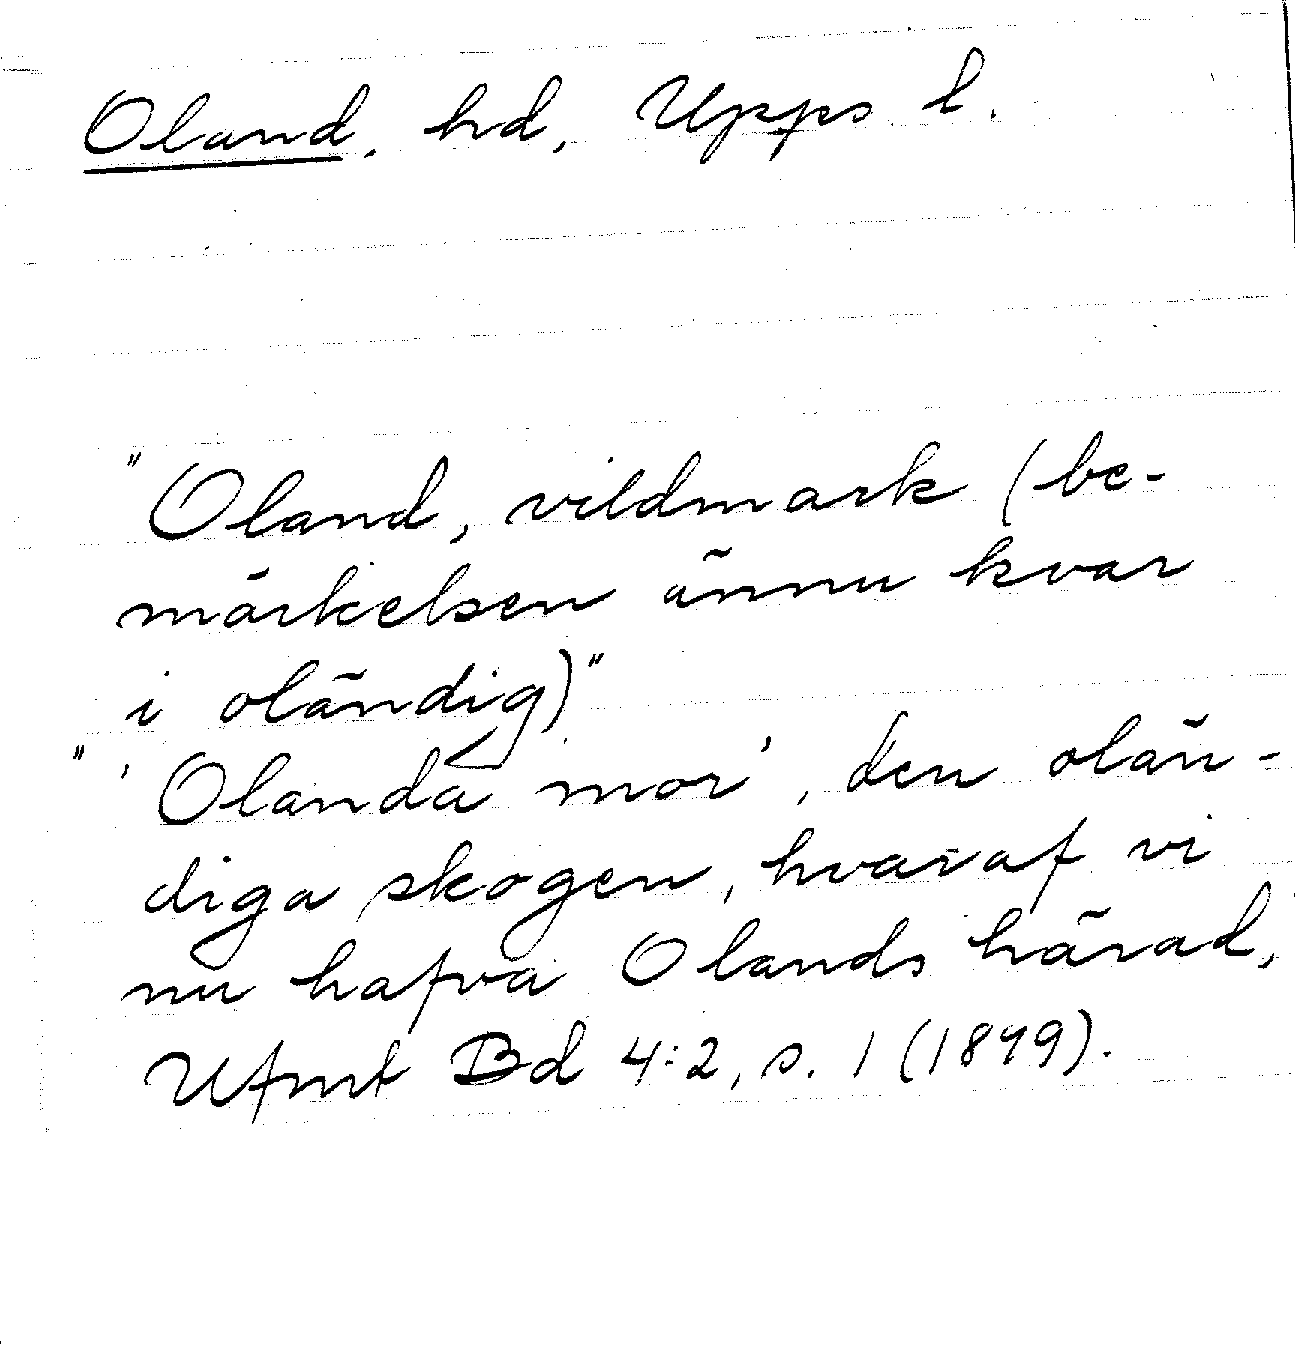 Oland, hd, Upps l.
"Oland, vildmark (be-
märkelsen ännu kvar
i oländig)"
" 'Olanda mor', den olän-
diga skogen, hvaraf vi
nu hafva Olands härad,
Ufmt Bd 4:2, s. 1 (1899).